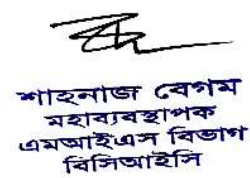 শাহনাজ বেগম
মহাব্যবস্থাপক
এমআইএস বিভাগ
বিসিআইসি